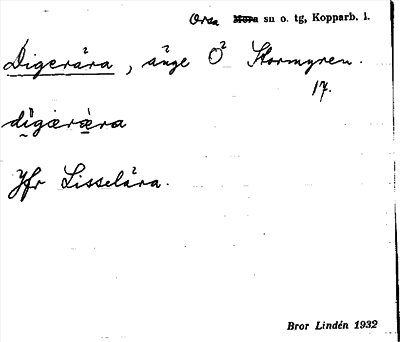 Orsa ~~Mora~~ sn o. tg, Kopparb. l.
Digeråra, änge Ö² Stormyren.
17.
dìgæræ̀ra
Jfr Lisselåra.
Bror Lindén 1932